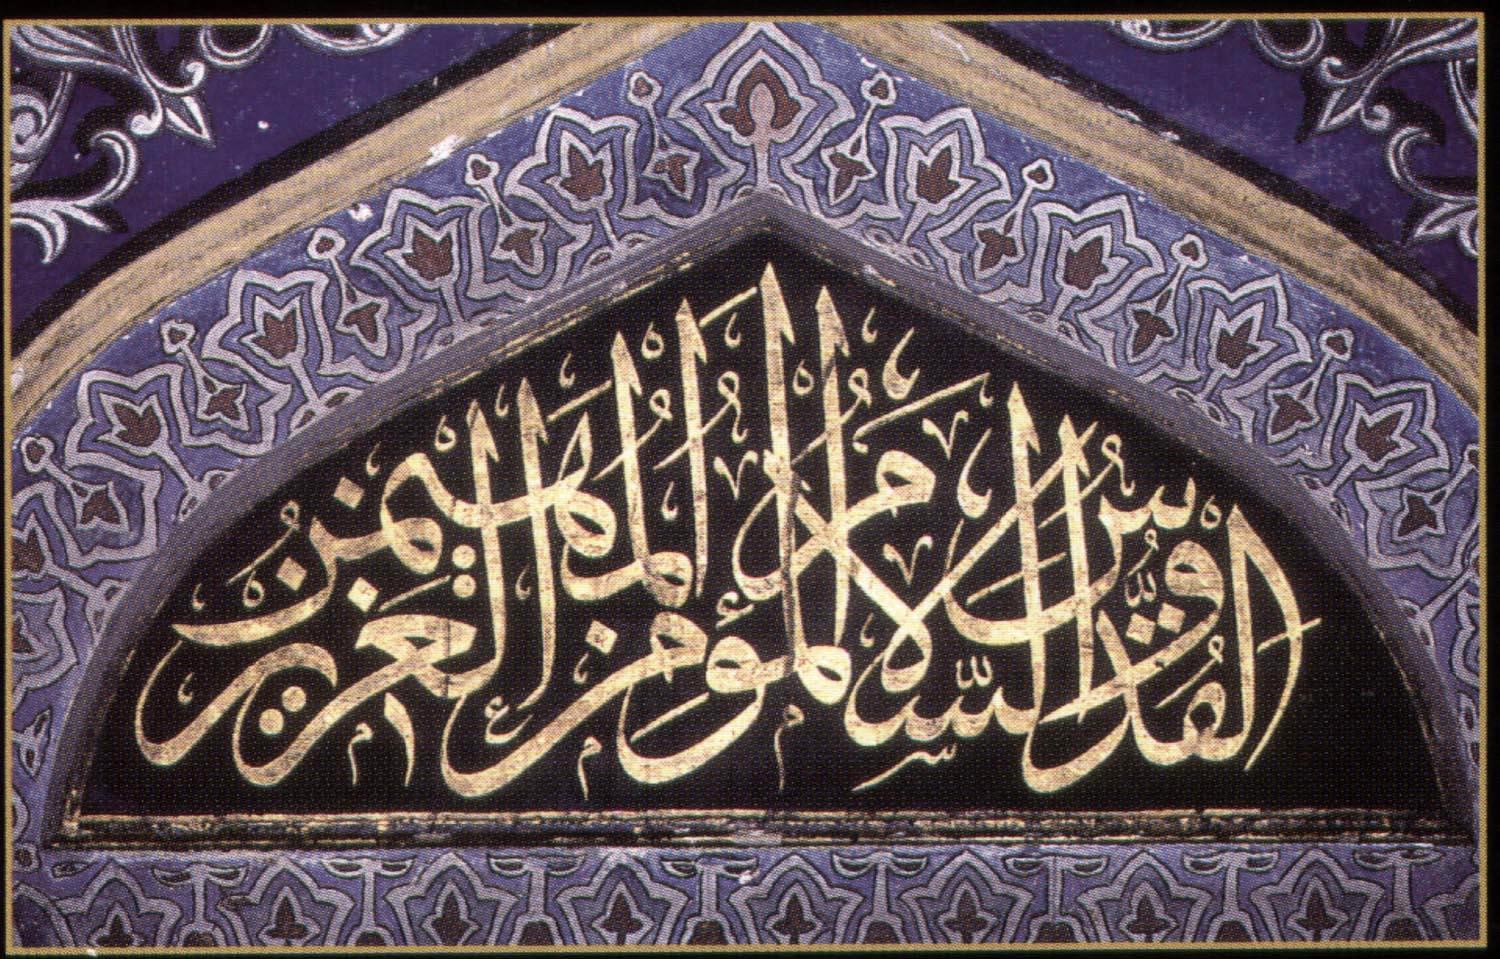 القُدُّوسُ السَّلَامُ الْمُؤْمِنُ الْمُهَيْمِنُ الْعَزِيزُ